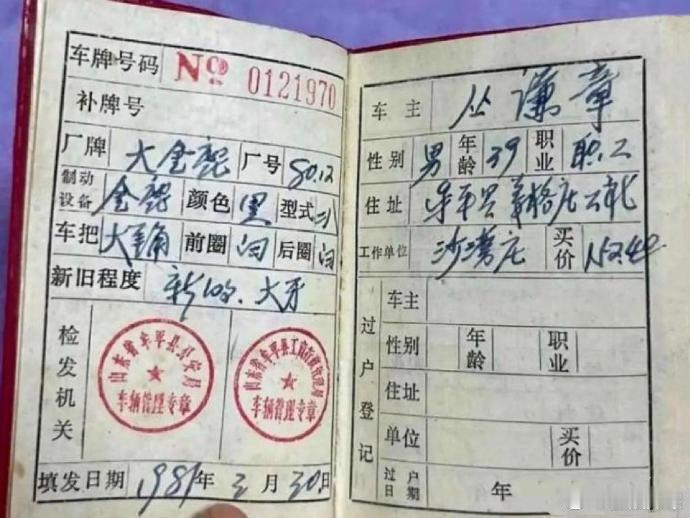 车牌号码 № 0121970
补牌号
厂牌 大金鹿 厂号 80.12
制动设备 全配 颜色 黑 型式
车把 前圈 白 后圈 白
新旧程度 新 大牙
检发机关
山东省牟平县公安局
车辆管理专章
山东省牟平县工商行政管理局
车辆管理专章
填发日期 1981年 3月 30日
车主 丛谦章
性别 男 年龄 39 职业 职工
住址 牟平县 莒格庄公社
工作单位 沙湾庄 买价
过户登记
车主
性别 年龄 职业
住址
单位 买价
过户日期 年